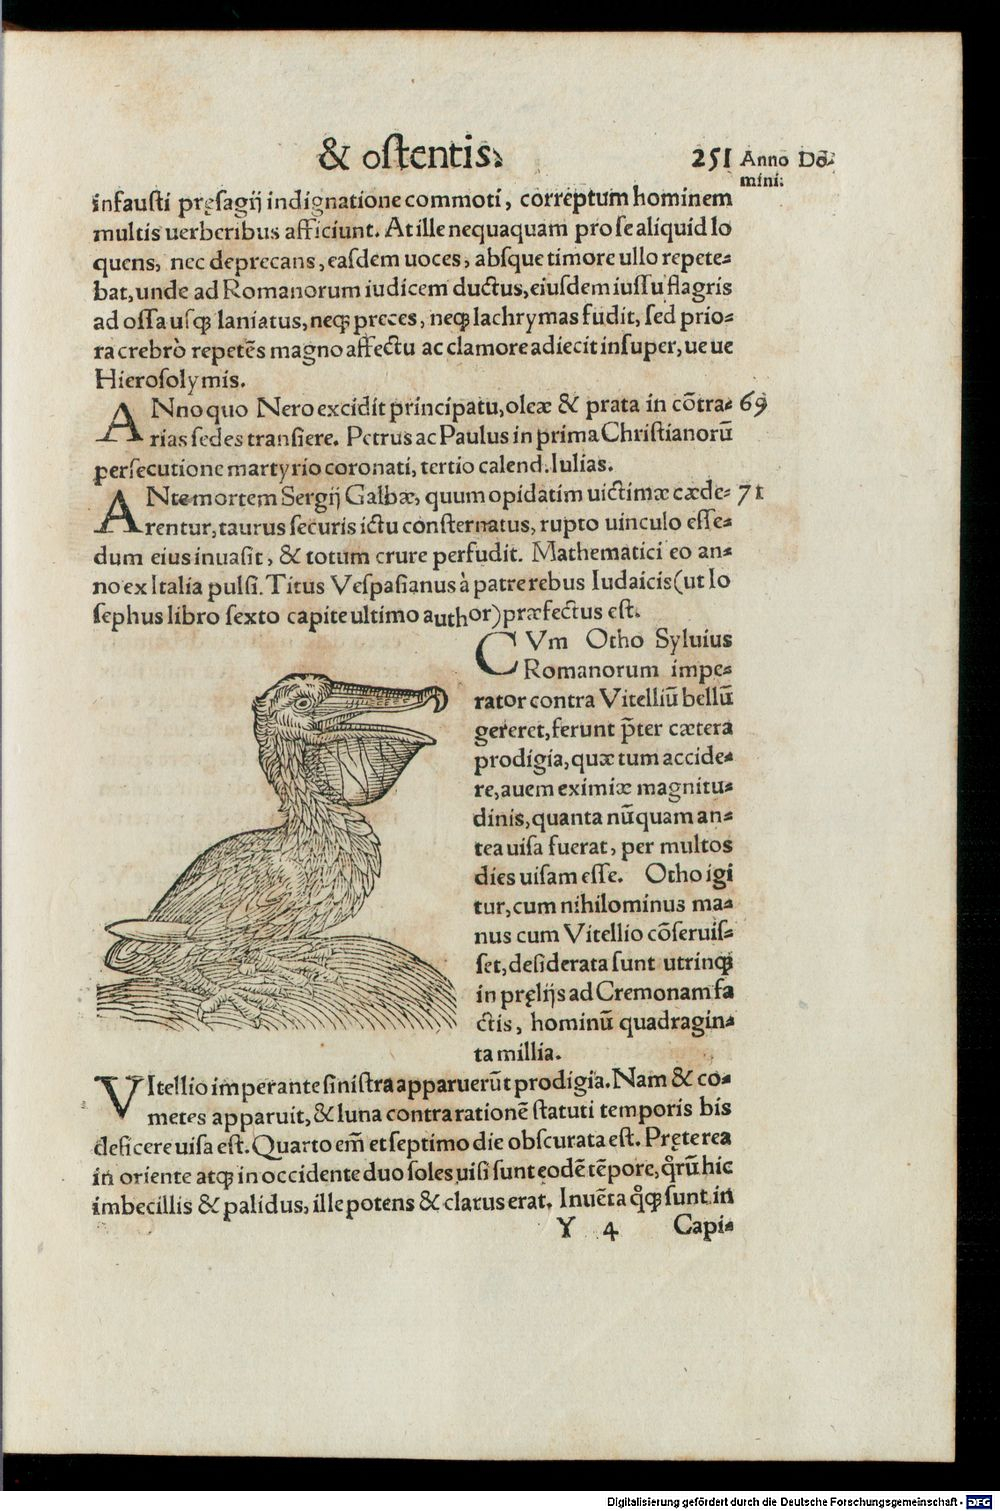 & ostentis. 251 Anno Do-
mini.
infausti pręsagij indignatione commoti, correptum hominem
multis uerberibus afficiunt. At ille nequaquam pro se aliquid lo
quens, nec deprecans, easdem uoces, absque timore ullo repete-
bat, unde ad Romanorum iudicem ductus, eiusdem iussu flagris
ad ossa usq; laniatus, neq; preces, neq; lachrymas fudit, sed prio-
ra crebrò repetẽs magno affectu ac clamore adiecit insuper, ue ue
Hierosolymis.
ANno quo Nero excidit principatu, oleæ & prata in cõtra- 69
rias sedes transiere. Petrus ac Paulus in prima Christianorũ
persecutione martyrio coronati, tertio calend. Iulias.
ANte mortem Sergij Galbæ, quum opidatim uictimæ cæde- 71
rentur, taurus securis ictu consternatus, rupto uinculo esse-
dum eius inuasit, & totum crure perfudit. Mathematici eo an-
no ex Italia pulsi. Titus Vespasianus à patre rebus Iudaicis (ut Io
sephus libro sexto capite ultimo author) præfectus est.
CVm Otho Syluius
Romanorum impe-
rator contra Vitelliũ bellũ
gereret, ferunt p̃ter cætera
prodigia, quæ tum accide-
re, auem eximiæ magnitu-
dinis, quanta nũquam an-
tea uisa fuerat, per multos
dies uisam esse. Otho igi
tur, cum nihilominus ma-
nus cum Vitellio cõseruis-
set, desiderata sunt utrinq;
in pręlijs ad Cremonam fa
ctis, hominũ quadragin-
ta millia.
VItellio imperante sinistra apparuerũt prodigia. Nam & co-
metes apparuit, & luna contra rationẽ statuti temporis bis
deficere uisa est. Quarto em̃ et septimo die obscurata est. Pręterea
in oriente atq; in occidente duo soles uisi sunt eodẽ tẽpore, qͦrũ hic
imbecillis & palidus, ille potens & clarus erat. Inuẽta qͦq; sunt in
Y 4 Capi-
Digitalisierung gefördert durch die Deutsche Forschungsgemeinschaft - DFG